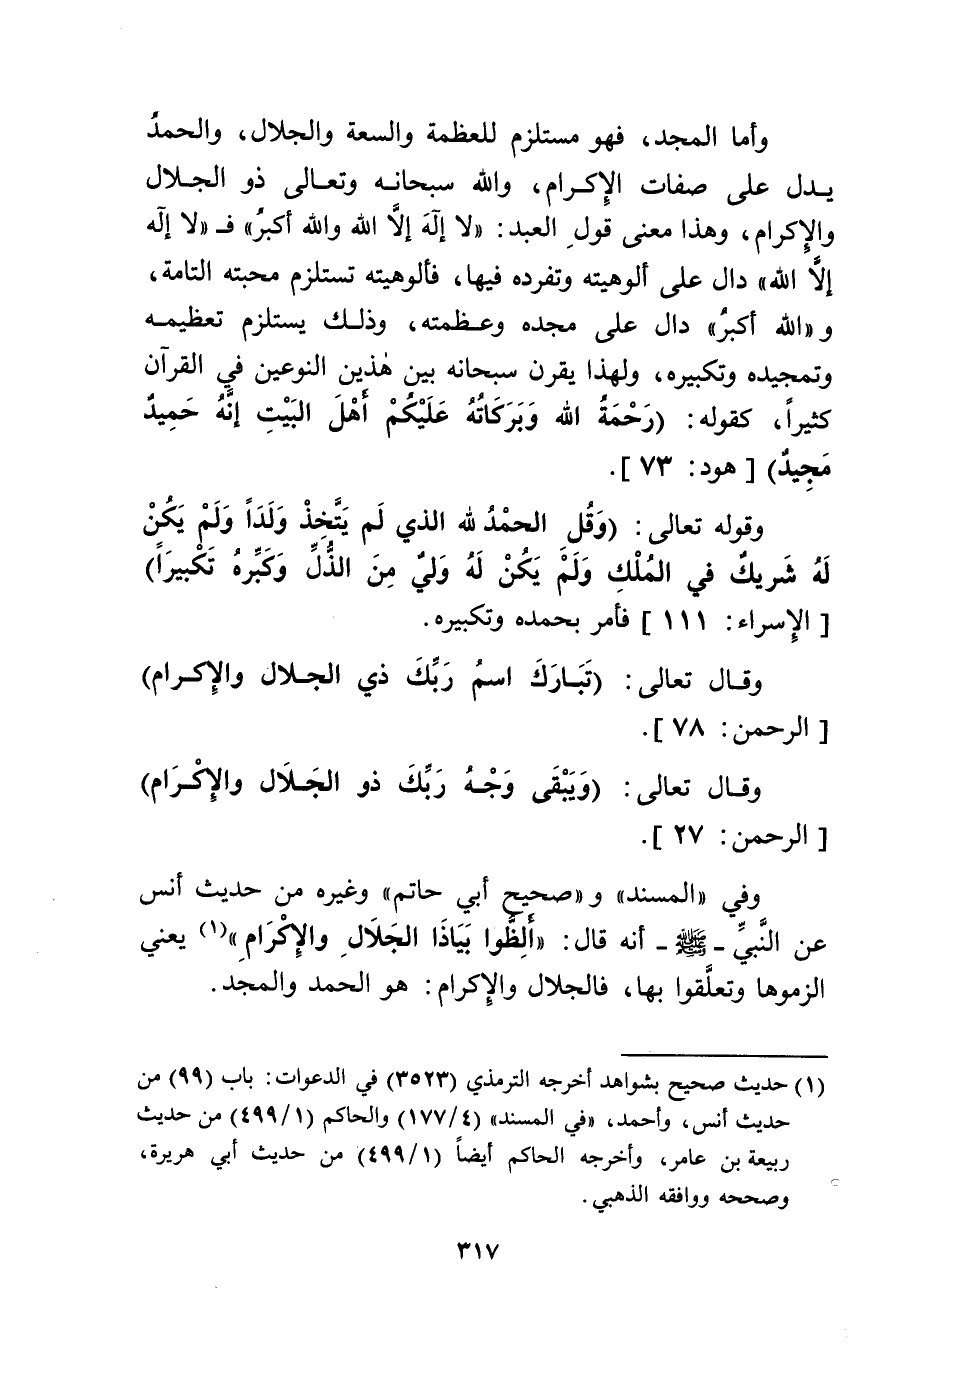 وأما المجد، فهو مستلزم للعظمة والسعة والجلال، والحمدُ
يدل على صفات الإكرام، والله سبحانه وتعالى ذو الجلال
والإكرام، وهذا معنى قول العبد: «لا إلٰهَ إلاَّ الله والله أكبرُ» فـ «لا إلٰه
إلاَّ الله» دال على ألوهيته وتفرده فيها، فألوهيته تستلزم محبته التامة،
و«الله أكبرُ» دال على مجده وعظمته، وذلك يستلزم تعظيمه
وتمجيده وتكبيره، ولهذا يقرن سبحانه بين هٰذين النوعين في القرآن
كثيراً، كقوله: (رَحْمَةُ الله وَبَرَكَاتُهُ عَلَيْكُمْ أَهْلَ البَيْتِ إنَّهُ حَمِيدٌ
مَجِيدٌ) [ هود: ٧٣ ].
وقوله تعالى: (وَقُل الحمْدُ لله الذي لَم يَتَّخِذْ وَلَدَاً وَلَمْ يَكُنْ
لَهُ شَريكٌ في المُلْكِ وَلَمْ يَكُنْ لَهُ وَليٌ مِنَ الذُّلِّ وَكَبِّرهُ تَكْبيرَاً)
[ الإسراء: ١١١ ] فأمر بحمده وتكبيره.
وقال تعالى: (تَبَارَكَ اسمُ رَبِّكَ ذي الجلال والإكرام)
[ الرحمن: ٧٨ ].
وقال تعالى: (وَيَبْقَى وَجْهُ رَبِّكَ ذو الجَلَال والإكْرَام)
[ الرحمن: ٢٧ ].
وفي «المسند» و«صحيح أبي حاتم» وغيره من حديث أنس
عن النَّبيِّ - ﷺ - أنه قال: «أَلِظُّوا بَيَاذَا الجَلَال والإكْرَامِ»(١) يعني
الزموها وتعلَّقوا بها، فالجلال والإكرام: هو الحمد والمجد.
(١) حديث صحيح بشواهد أخرجه الترمذي (٣٥٢٣) في الدعوات: باب (٩٩) من
حديث أنس، وأحمد، «في المسند» (٤/١٧٧) والحاكم (١/٤٩٩) من حديث
ربيعة بن عامر، وأخرجه الحاكم أيضاً (١/٤٩٩) من حديث أبي هريرة،
وصححه ووافقه الذهبي.
٣١٧